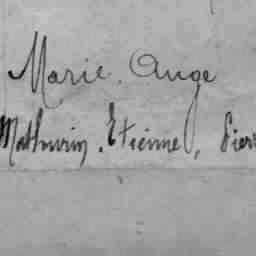 Marie. Ange
Mathurin. Etienne, Pierr